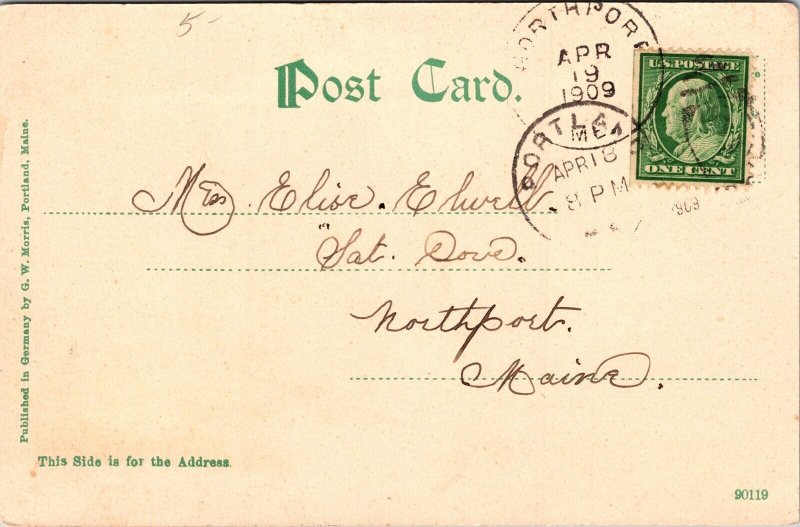 5-
NORTHPORT
APR
19
1909
Post Card.
U.S. POSTAGE
ONE CENT
PORTLAND
ME.
APR 18
8 PM
1909
Miss. Elise. Elwell.
"Sat. Dove.
Northport.
Maine.
Published in Germany by G. W. Morris, Portland, Maine.
This Side is for the Address.
90119